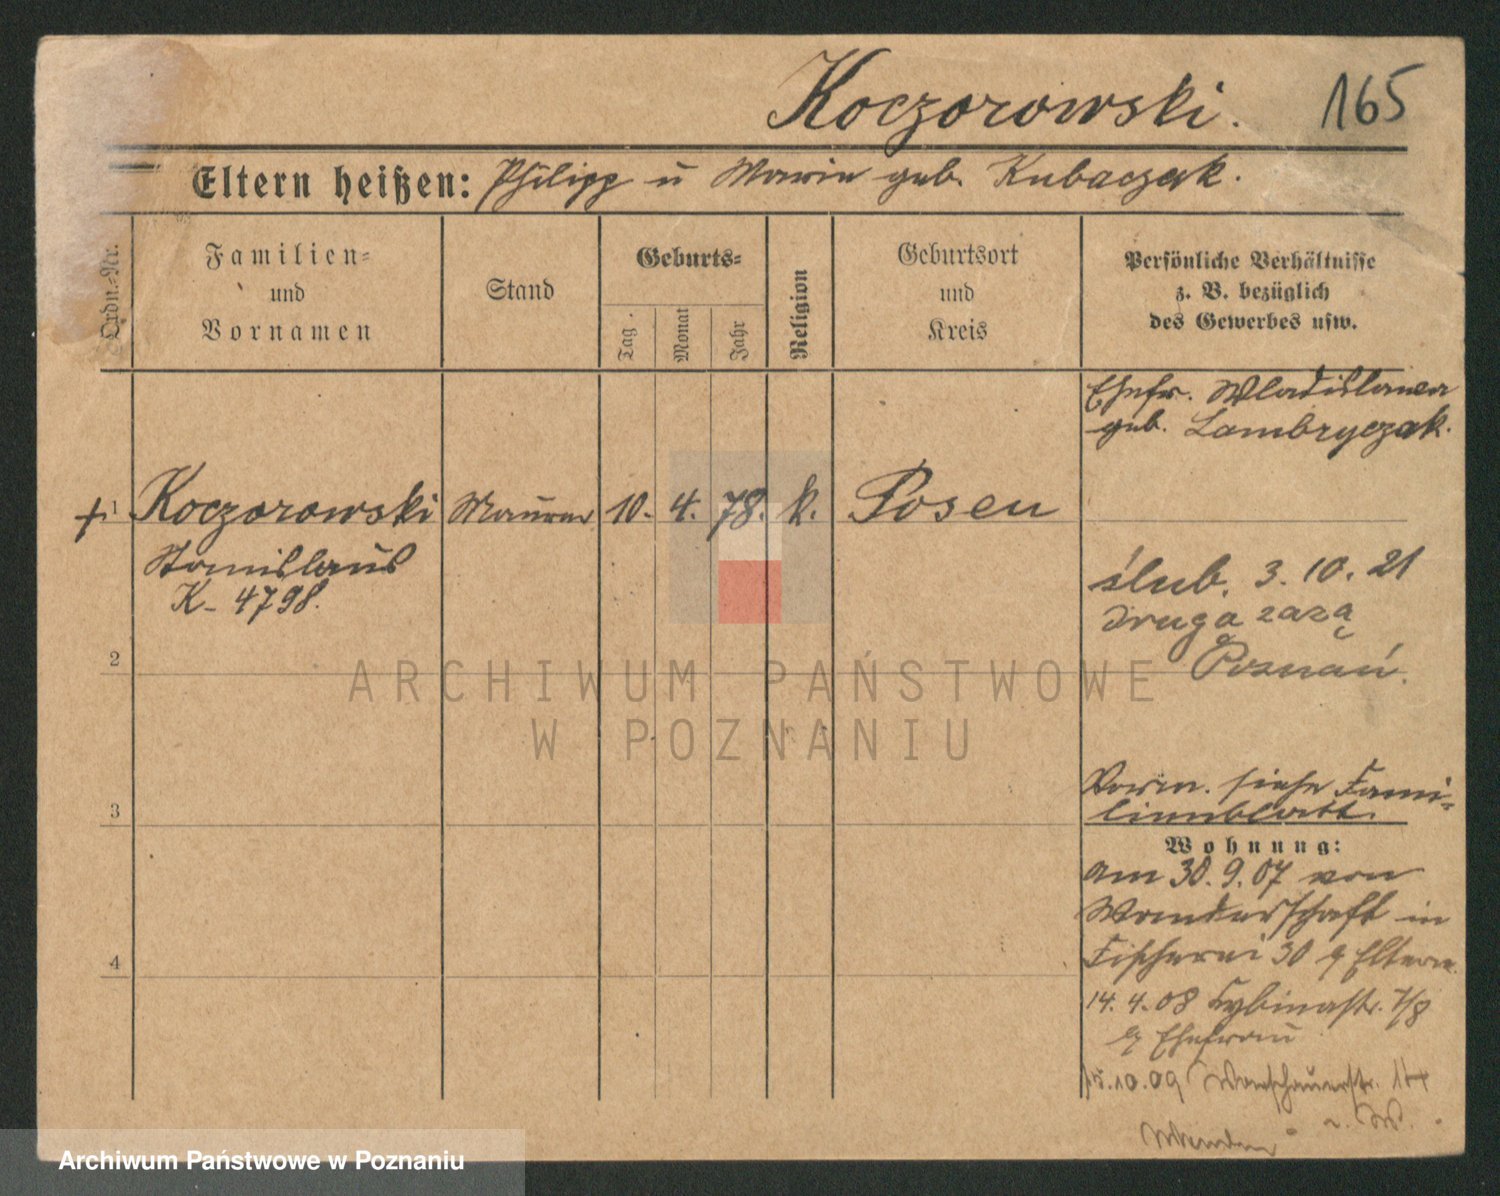 Koczorowski. 165
Eltern heißen: Philipp u Maria geb. Kubaczak.
Ordn.-Nr.
Familien-
und
Vornamen
Stand
Geburts-
Tag.
Monat
Jahr
Religion
Geburtsort
und
Kreis
Persönliche Verhältnisse
z. B. bezüglich
des Gewerbes usw.
Ehefr. Wladislawa
geb. Lambryczak.
+ 1 Koczorowski Maurer 10. 4. 78. k. Posen
Stanislaus
K- 4798.
ślub. 3. 10. 21
drugą zazą
Poznań.
2
3
4
Verm. siehe Fami-
lienblatt.
Wohnung:
am 30. 9. 07 von
Wanderschaft in
Fischerei 30 b/ Eltern.
14. 4. 08 Cybinastr. 7/8
b/ Ehefrau
15.10.09 Warschauerstr. 14
ARCHIWUM PAŃSTWOWE
W POZNANIU
Archiwum Państwowe w Poznaniu